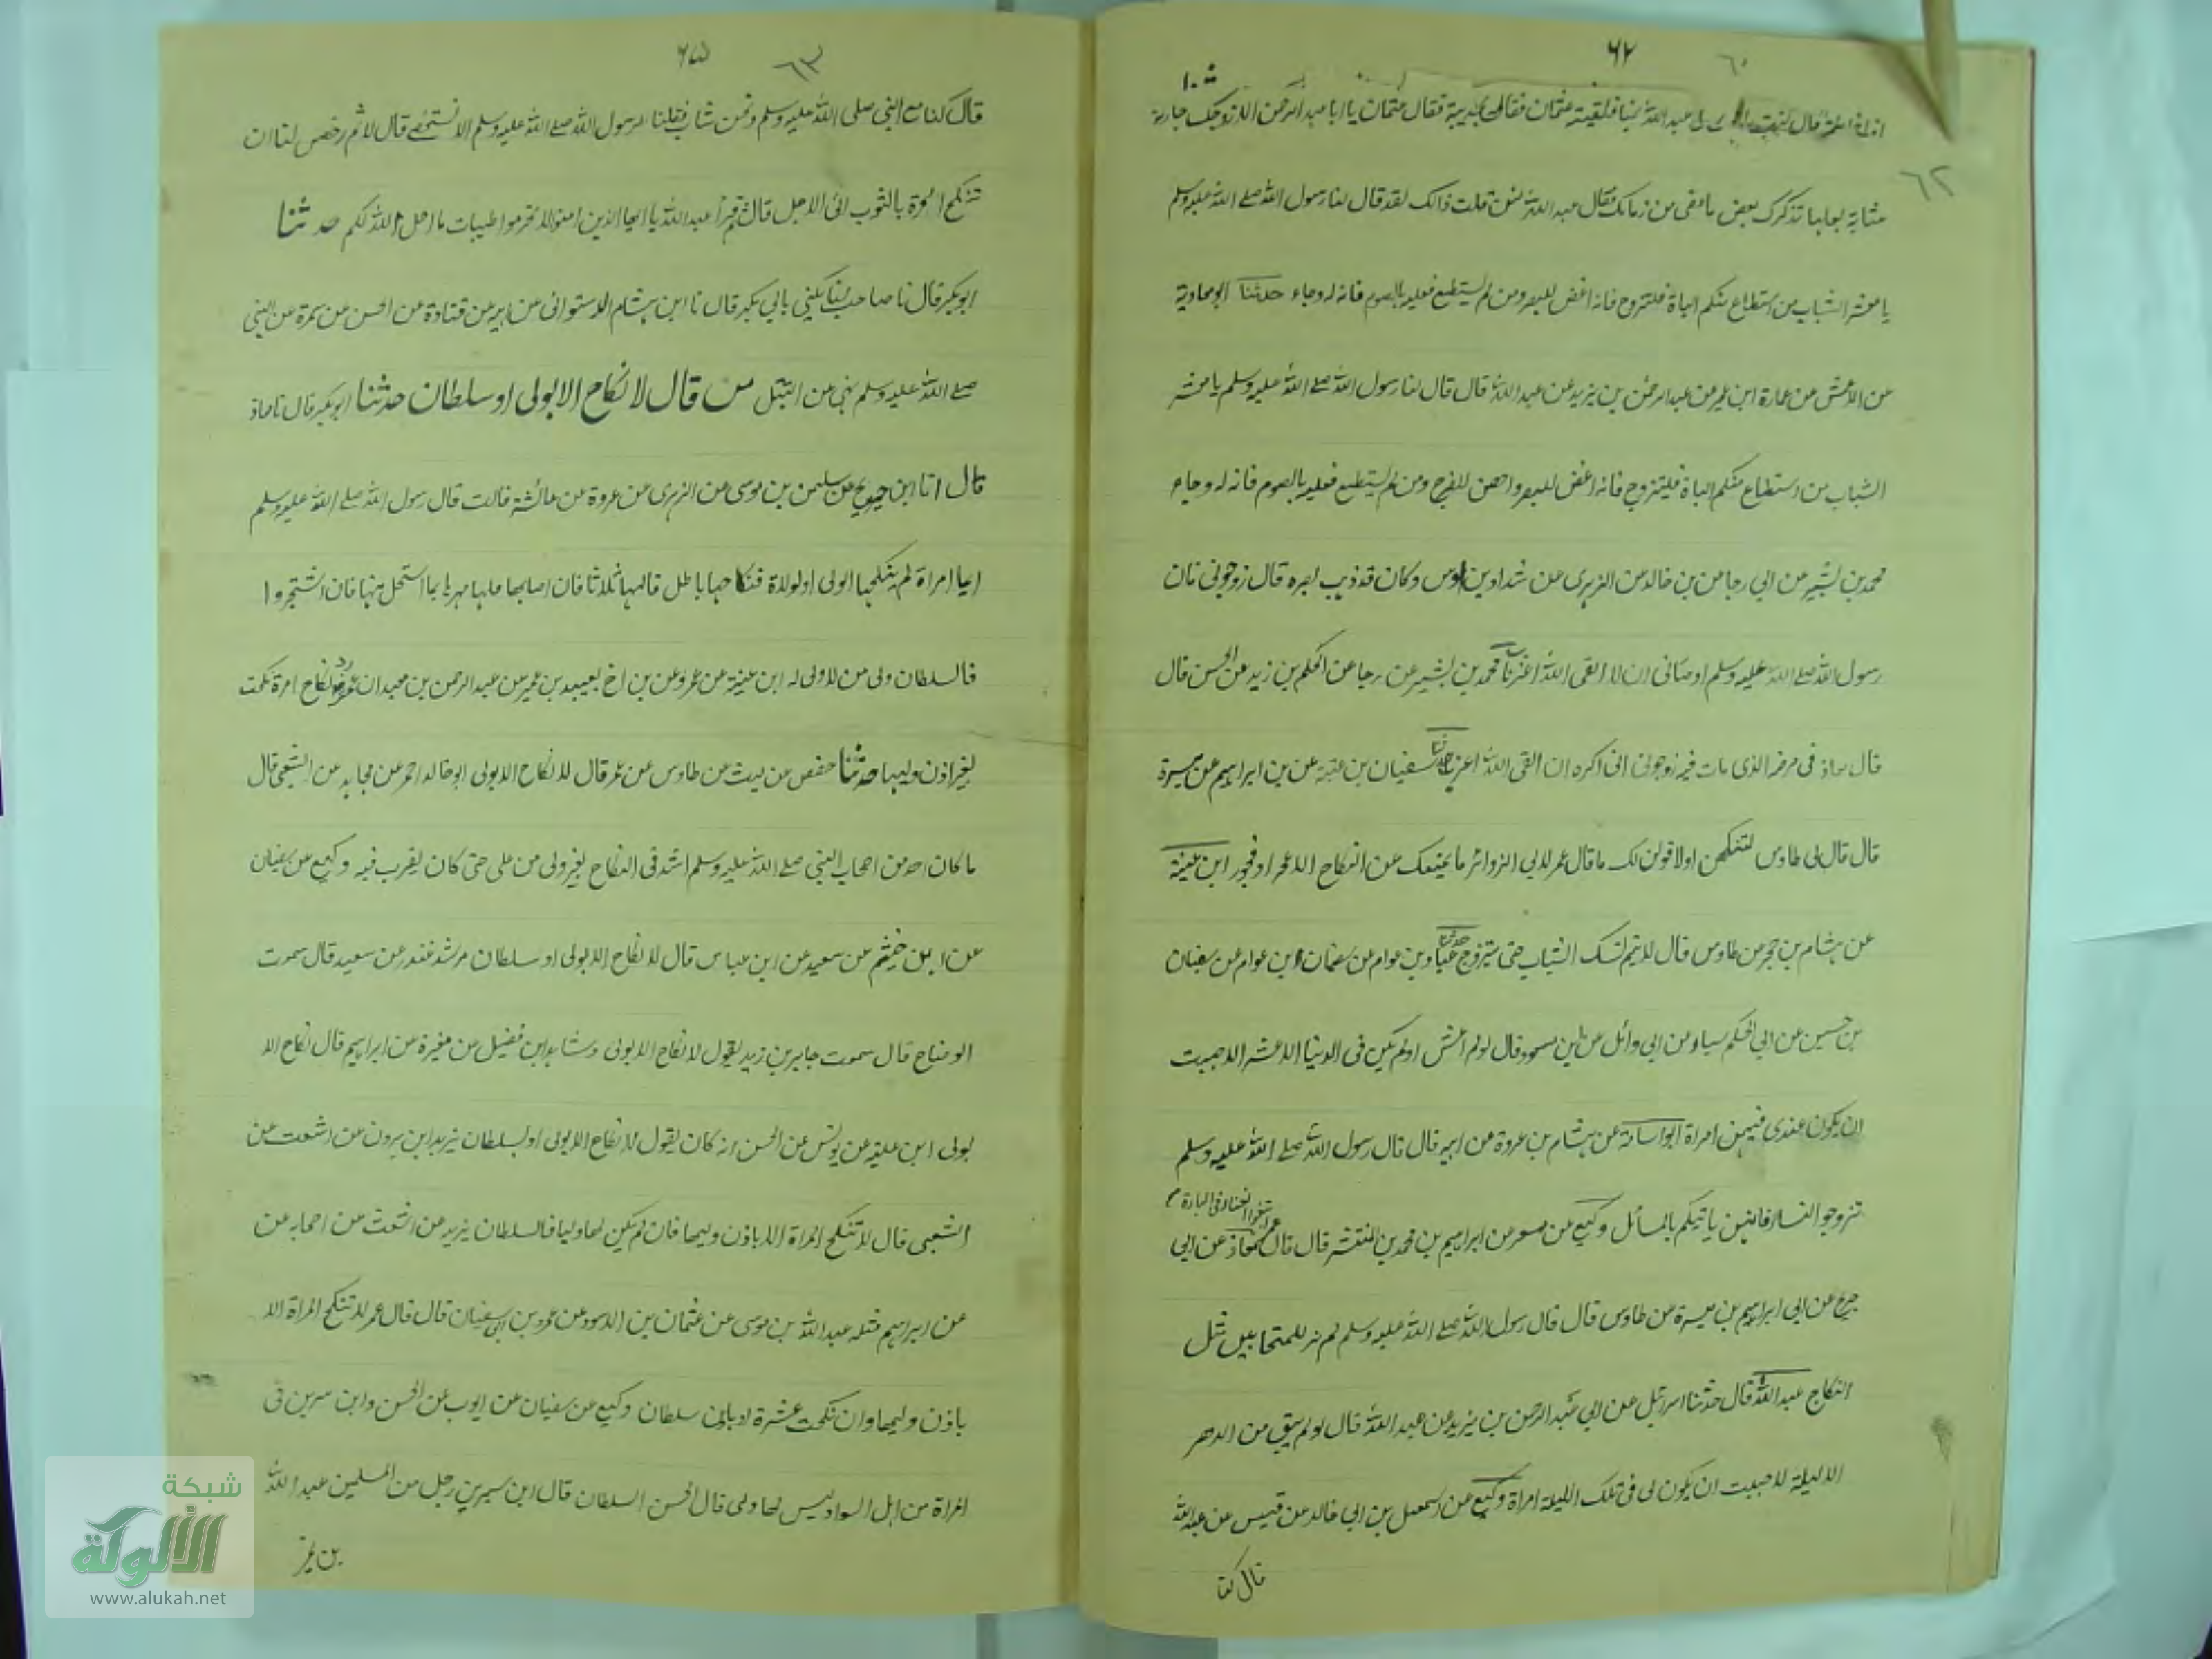 ٦٢ ٦٠
٦٢
قال كنت مع عبد الله بمنا فلقيته عثمان فقام يحدثه فقال عثمان يا ابا عبد الرحمن الا نزوجك جارية
شابة لعلها تذكرك بعض ما مضى من زمانك فقال عبد الله لئن قلت ذالك لقد قال لنا رسول الله صلے الله عليه وسلم
يا معشر الشباب من استطاع منكم الباة فليتزوج فانه اغض للبصر ومن لم يستطع فعليه بالصوم فانه له وجاء حدثنا ابو معاوية
عن الاعمش عن عمارة ابن عمير عن عبد الرحمن بن يزيد عن عبد الله قال قال لنا رسول الله صلے الله عليه وسلم يا معشر
الشباب من استطاع منكم الباة فليتزوج فانه اغض للبصر واحصن للفرج ومن لم يستطع فعليه بالصوم فانه له وجاء
محمد بن بشير عن ابي رجا من بن خالد من الزهرى عن شداد بن اوس وكان قد ذهب بصره قال زوجونى فان
رسول الله صلے الله عليه وسلم اوصانى ان لا القى الله اعزبا محمد بن بشير عن رجا عن الحكم بن زيد عن الحسن قال
قال معاذ فى مرضه الذى مات فيه زوجونى انى اكره ان القى الله اعزبا حدثنا سفيان بن عتبة عن بن ابراهيم عن ميسرة
قال قال لى طاوس لتنكحن اولا قولن لك ما قال عمر لابى الزوائد ما يمنعك عن النكاح الا عجز او فجور ابن عيينة
عن هشام بن حجر عن طاوس قال لا يتم نسك الشباب حتى يتزوج حدثنا عباد بن عوام عن سفيان ابن عوام عن سفيان
بن حسين عن ابي الحكم سيار عن ابي وائل عن ابن مسعود قال لو لم اعش اولم يكن فى الدنيا الا عشرا لاحببت
ان يكون عندى فيهن امراة ابو اسامة عن هشام بن عروة عن ابيه قال قال رسول الله صلے الله عليه وسلم
تزوجوا النساء فانهن ياتيكم بالمسائل وكيع عن مسعر عن ابراهيم بن محمد بن المنتشر قال قال عمر ابتغوا الغنا فى الباة معاذ عن ابى
جريج عن ابى ابراهيم بن ميسرة عن طاوس قال قال رسول الله صلے الله عليه وسلم لم نر للمتحابين مثل
النكاح عبد الله قال حدثنا اسرئيل عن ابى عبد الرحمن بن يزيد عن عبد الله قال لو لم يبق من الدهر
الا ليلة لاحببت ان يكون لى فى تلك الليلة امراة وكيع عن اسمعيل بن ابى خالد عن قيس عن عبد الله
قال كنا
٦٥ ٦٣
قال كنا مع النبى صلى الله عليه وسلم ونحن شباب فقلنا لرسول الله صلے الله عليه وسلم الا نستخصے قال لا ثم رخص لنا ان
تنكح المرة بالثوب الى الاجل قال ثم قرأ عبد الله يا ايها الذين امنوا لا تحرموا طيبات ما احل الله لكم حدثنا
ابو بكر قال نا صاحب لنا يكنى بابي بكر قال نا ابن هشام الدستوانى عن ابيه عن قتادة عن الحسن عن سمرة عن النبى
صلے الله عليه وسلم نهى عن التبتل من قال لا نكاح الا بولى او سلطان حدثنا ابو بكر قال نا معاذ
قال انا ابن جريج عن سليمن بن موسى عن الزهرى عن عروة عن عائشة قالت قال رسول الله صلے الله عليه وسلم
ايما امراة لم ينكحها الولى او لولاة فنكاحها باطل قالها ثلاثا فان اصابها فلها مهرها بما استحل منها فان اشتجروا
فالسلطان ولى من لا ولى له ابن عيينة عن عمرو عن بن اخ لعبيد بن عمير عن عبد الرحمن بن معبد ان عمر رد نكاح امرة نكحت
بغير اذن وليها حدثنا حفص عن ليث عن طاوس عن عمر قال لا نكاح الا بولى ابو خالد احمر عن مجاهد عن الشعبى قال
ما كان احد من اصحاب النبى صلے الله عليه وسلم اشد فى النكاح بغير ولى من على حتى كان يضرب فيه وكيع عن سفيان
عن ابن خيثم عن سعيد عن ابن عباس قال لا نكاح الا بولى او سلطان مرشد غندر عن سعيد قال سمعت
الوضاح قال سمعت جابر بن زيد يقول لا نكاح الا بولى وشاهد ابن فضيل عن مغيرة عن ابراهيم قال نكاح الا
بولى ابن علية عن يونس عن الحسن انه كان يقول لا نكاح الا بولى او بسلطان يزيد ابن هرون عن اشعث عن
الشعبى قال لا تنكح المراة الا باذن وليها فان لم يكن لها وليا فالسلطان يزيد عن اشعث عن اصحابه عن
عن ابراهيم مثله عبد الله بن موسى عن عثمان بن الاسود عن عمرو بن ابى سفيان قال قال عمر لا تنكح المراة الا
باذن وليها وان نكحت عشرة او باذن سلطان وكيع عن سفيان عن ايوب عن الحسن وابن سرين فى
امراة من اهل السواد ليس لها ولى قال الحسن السلطان قال ابن سيرين رجل من المسلمين عبد الله
بن عمر
شبكة
الألوكة
www.alukah.net